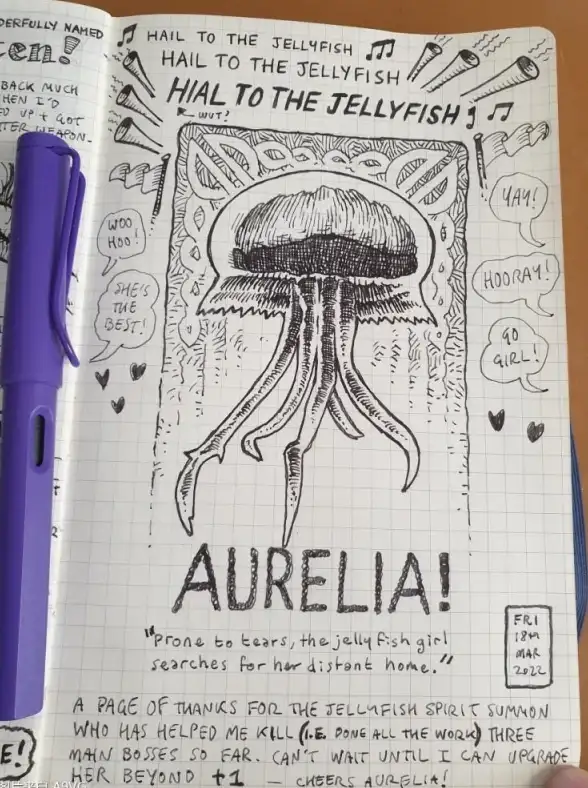 DERFULLY NAMED
ten!
BACK MUCH
HEN I'D
ED UP + GOT
TTER WEAPON.
HAIL TO THE JELLYFISH
HAIL TO THE JELLYFISH
HIAL TO THE JELLYFISH
WUT?
WOO
HOO!
SHE'S
THE
BEST!
YAY!
HOORAY!
GO
GIRL!
AURELIA!
"Prone to tears, the jellyfish girl
searches for her distant home."
FRI
18TH
MAR
2022
A PAGE OF THANKS FOR THE JELLYFISH SPIRIT SUMMON
WHO HAS HELPED ME KILL (I.E. DONE ALL THE WORK) THREE
MAIN BOSSES SO FAR. CAN'T WAIT UNTIL I CAN UPGRADE
HER BEYOND +1 — CHEERS AURELIA!
E!